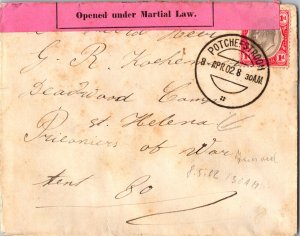 Opened under Martial Law.
POTCHEFSTROOM
8 APR 02 8 30AM
1d
G. R. Kochem
Deadwood Camp
St. Helena
Prisoners of War
tent 80